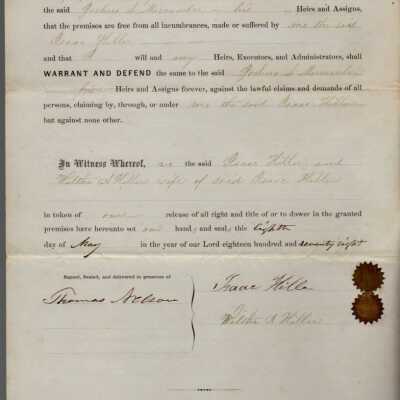 the said Joshua S. Merwander his Heirs and Assigns,
that the premises are free from all incumbrances, made or suffered by me the said
Isaac Hiller
and that I will and my Heirs, Executors, and Administrators, shall
WARRANT AND DEFEND the same to the said Joshua S.
his Heirs and Assigns forever, against the lawful claims and demands of all
persons, claiming by, through, or under me the said Isaac Hiller
but against none other.
In Witness Whereof, we the said Isaac Hiller and
A Hiller wife of said Isaac Hiller
in token of our release of all right and title of or to dower in the granted
premises have hereunto set our hand and seal, this eighth
day of May in the year of our Lord eighteen hundred and seventy eight
Signed, Sealed, and delivered in presence of
Thomas Nelson
Isaac Hiller
A Hiller